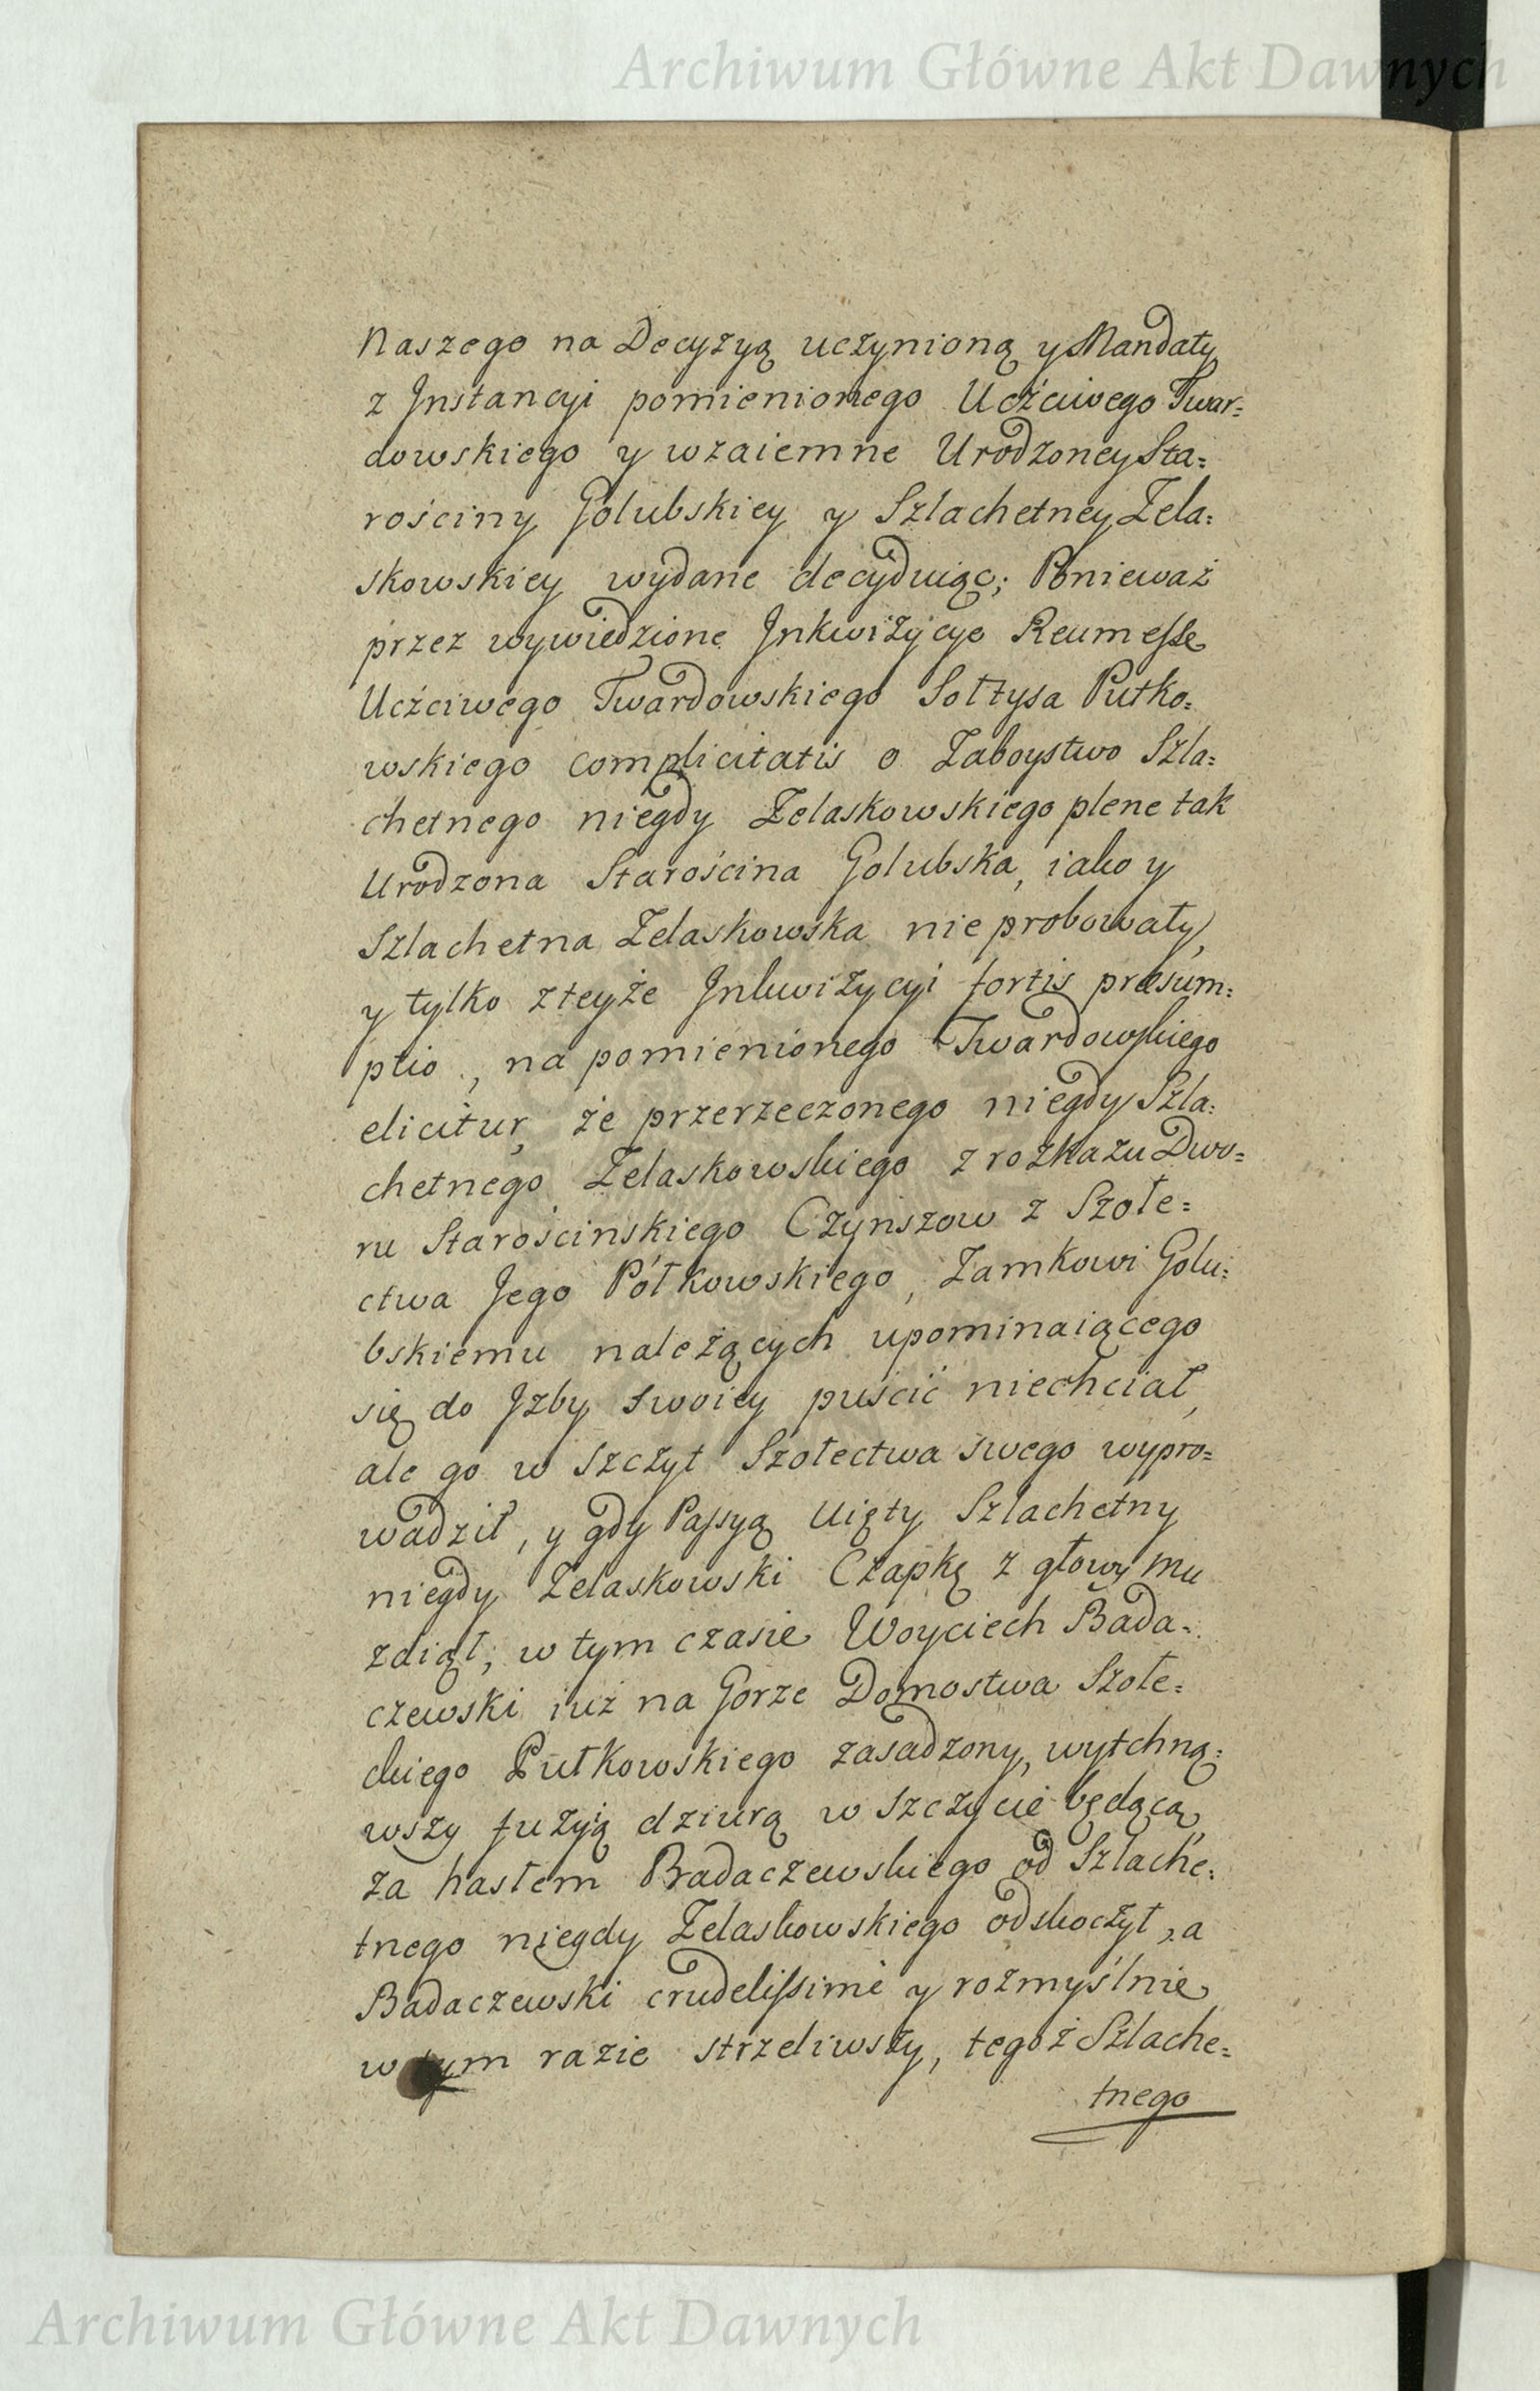 Archiwum Główne Akt Dawnych
Naszego na Decyzyą uczynioną y Mandaty
z Jnstancyi pomienionego Uczciwego Twar=
dowskiego y wzaiemne Urodzoney Sta=
rościny Golubskiey y Szlachetney Zela=
skowskiey wydane decyduiąc; Ponieważ
przez wywiedzione Jnkwizycye Reum esse
Uczciwego Twardowskiego Sołtysa Putko=
wskiego complicitatis o Zaboystwo Szla=
chetnego niegdy Zelaskowskiego plene tak
Urodzona Starościna Golubska, iako y
Szlachetna Zelaskowska nie probowały,
y tylko z teyże Jnkwizycyi fortis præsum=
ptio, na pomienionego Twardowskiego
elicitur, że przerzeczonego niegdy Szla=
chetnego Zelaskowskiego z rozkazu Dwo=
ru Starościnskiego Czynszow z Szołe=
ctwa Jego Półkowskiego, Zamkowi Golu=
bskiemu należących upominaiącego
się do Jzby swoiey puścić niechciał,
ale go w Szczyt Szołectwa swego wypro=
wadził, y gdy Passyą uięty Szlachetny
niegdy Zelaskowski Czapkę z głowy mu
zdiął; w tym czasie Woyciech Bada=
czewski iuż na Gorze Domostwa Szołe=
ckiego Putkowskiego zasadzony, wytchną=
wszy fuzyią dziurą w Szczycie będącą,
za hasłem Badaczewskiego od Szlache=
tnego niegdy Zelaskowskiego odskoczył, a
Badaczewski crudelissime y rozmyślnie
w tym razie strzeliwszy, tegoż Szlache=
tnego
Archiwum Główne Akt Dawnych